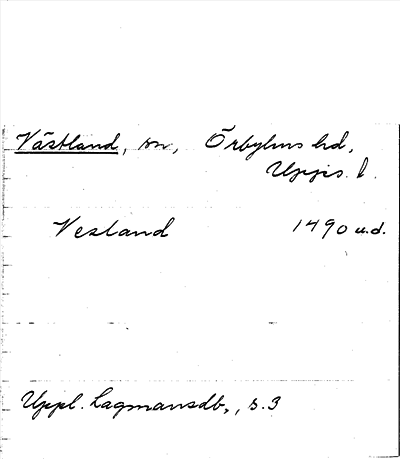 Västland, sn, Örbyhus hd,
Upps. l.
Vesland 1490 u.d.
Uppl. Lagmansdb., s. 3